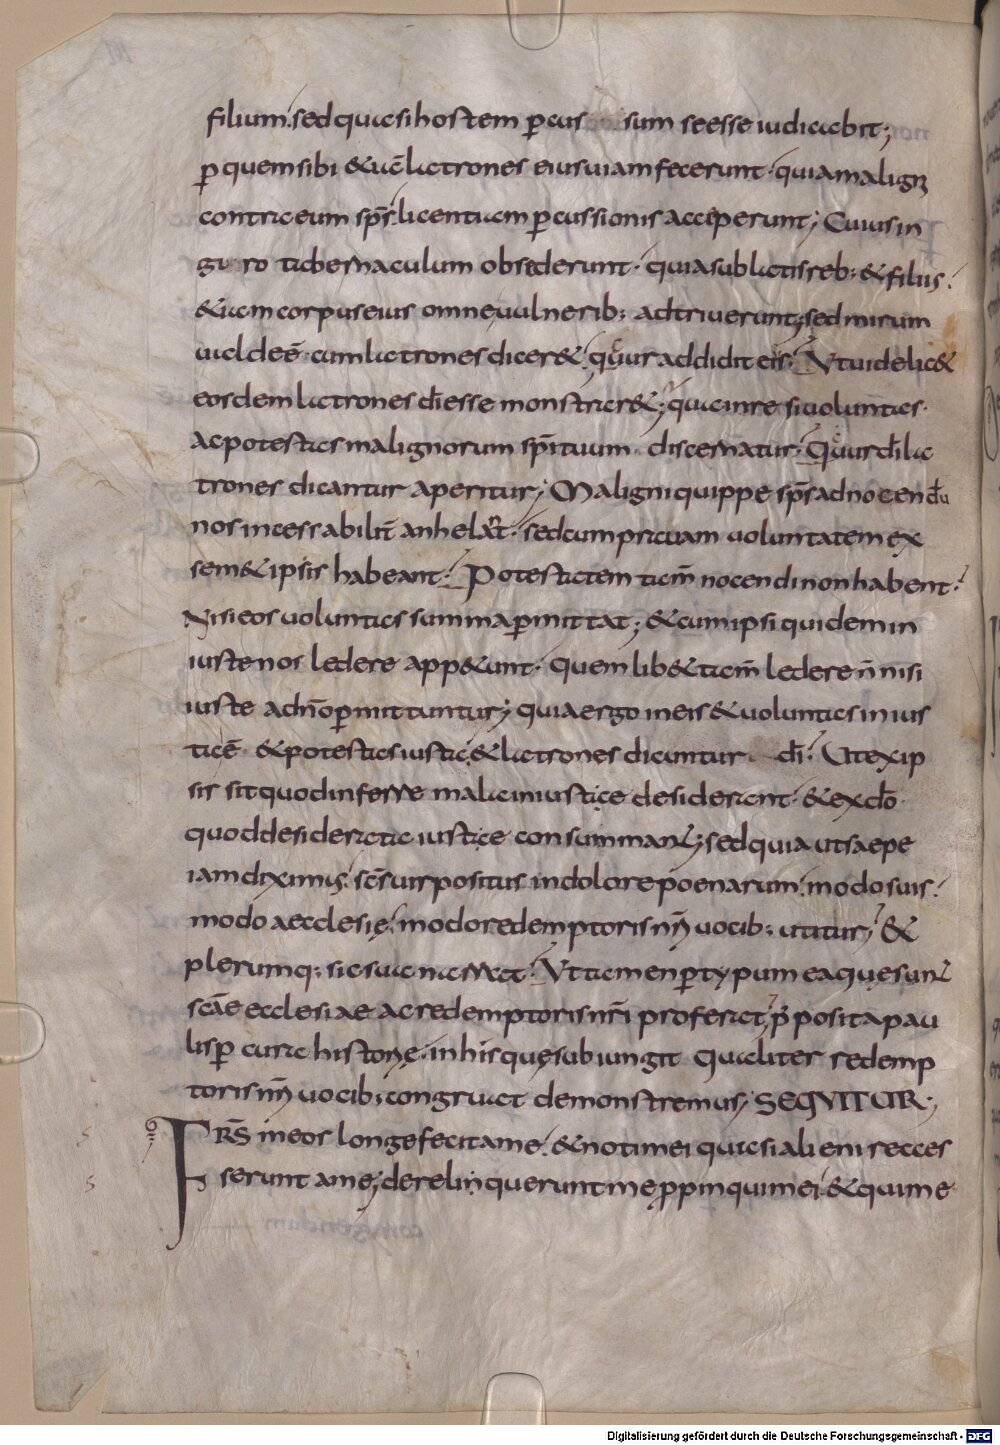 filium. sed quasi hostem ꝑcus sum seesse iudicabit;
ꝑquemsibi &uē latrones eiusuiamfecerunt. quiamalignꝫ
contraeum sp̄s licentiam ꝑcussionis acceperunt; Cuiusin
gỹro tabernaculum obsederunt. quiasublatisreb; &filiis.
&iamcorpuseius omneuulnerib; adtriuerunt; sedmirum
ualdeē. cumlatrones dicer&. qur addidit eis. Vtuidelic&
eosdemlatrones dīesse monstrar&; quiainre siuoluntas.
acpotestas malignorum sp̄ituum. discernatur. Qurdīla
trones dicantur aperitur; Maligniquippe sp̄sadnocendū
nos incessabilit̄ anhelant. sedcumprauam uoluntatem ex
sem&ipsis habeant. Potestatem tam̄ nocendinonhabent.
Nisieos uoluntas summaꝑmittat; &cumipsi quidemin
iustenos ledere app&unt. quemlib&tam̄ ledere n̄ nisi
iuste adn̄oꝑmittuntur; quiaergo ineis &uoluntas inius
taē. &potestas iusta. &latrones dicuntur dī. Utexip
sis sitquodinferre mala iniustę desiderant. &exdō
quoddesiderata iustę consummant; sedquia utsaepe
iamdiximus. sc̄suirpositus indolore poenarum. modosuis.
modo aecclesię. modoredemptoris nr̄i uocib; utitur; &
plerumq; sicsua narrat. Vttamen ꝑtypum eaquęsunt
scāe ecclesiae acredemptoris nr̄i proferat; p̄positapau
lisꝑ cura historię. inhisquęsubiungit qualiter redemp
toris nr̄i uocib; congruat demonstremus; SEQVITUR;
FRS̄ meos longefecitame. &notimei quasialieni recces
serunt ame; derelinquerunt me ꝓpinquimei. &quime
Digitalisierung gefördert durch die Deutsche Forschungsgemeinschaft - DFG